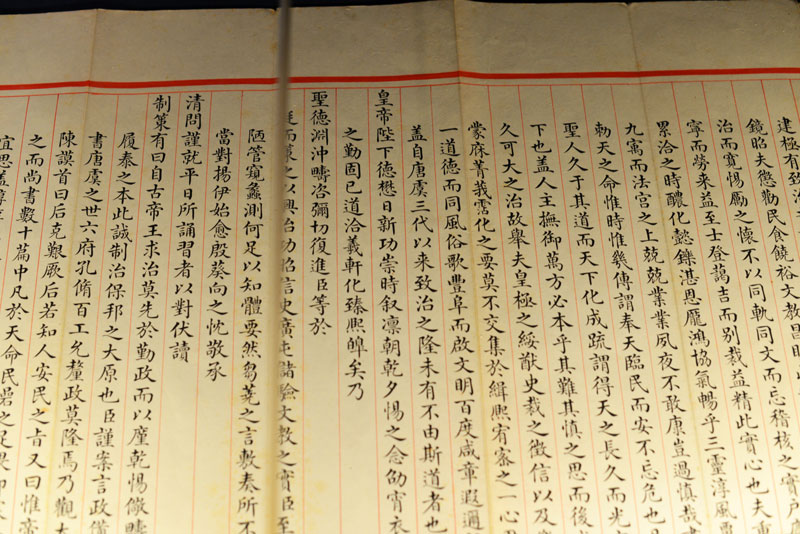 建極有致治
鏡昭夫懲勸民食饒裕文教昌明
治而寛惕厲之懷不以同軌同文而忘稽核之實
寧而勞来益至士登藹吉而别裁益精此實心也夫重
累洽之時醲化懿鑠湛恩厖鴻協氣暢乎三靈淳風
九㝢而法宫之上兢兢業業夙夜不敢康豈過慎哉
勑天之命惟時惟幾傳謂奉天臨民而安不忘危也
聖人久于其道而天下化成疏謂得天之長久而光
下也盖人主撫御萬方必本乎其難其慎之思而後
久可大之治故舉夫皇極之綏猷史裁之徵信以及
蒙麻菁莪霑化之要莫不交集於緝熙宥密之一心
一道德而同風俗歌豐阜而啟文明百度咸章遐邇
盖自唐虞三代以来致治之隆未有不由斯道者也
皇帝陛下德懋日新功崇時叙凛朝乾夕惕之念劭宵衣
之勤固已道洽羲軒化臻熙皥矣乃
聖德淵沖疇咨彌切復進臣等於
廷而策之以興治劝
陋管窺蠡測何足以知體要然芻蕘之言敷奏所不
當對揚伊始愈殷葵向之忱敬承
清問謹就平日所誦習者以對伏讀
制策有曰自古帝王求治莫先於勤政而以廑乾惕儆疇
履泰之本此誠制治保邦之大原也臣謹案言政備
書唐虞之世六府孔脩百工允釐政莫隆焉乃觀大
陳謨首曰后克艱厥后若知人安民之㫖又曰惟帝
之而尚書數十篇中凡於天命民碞之足畏
宜思盖